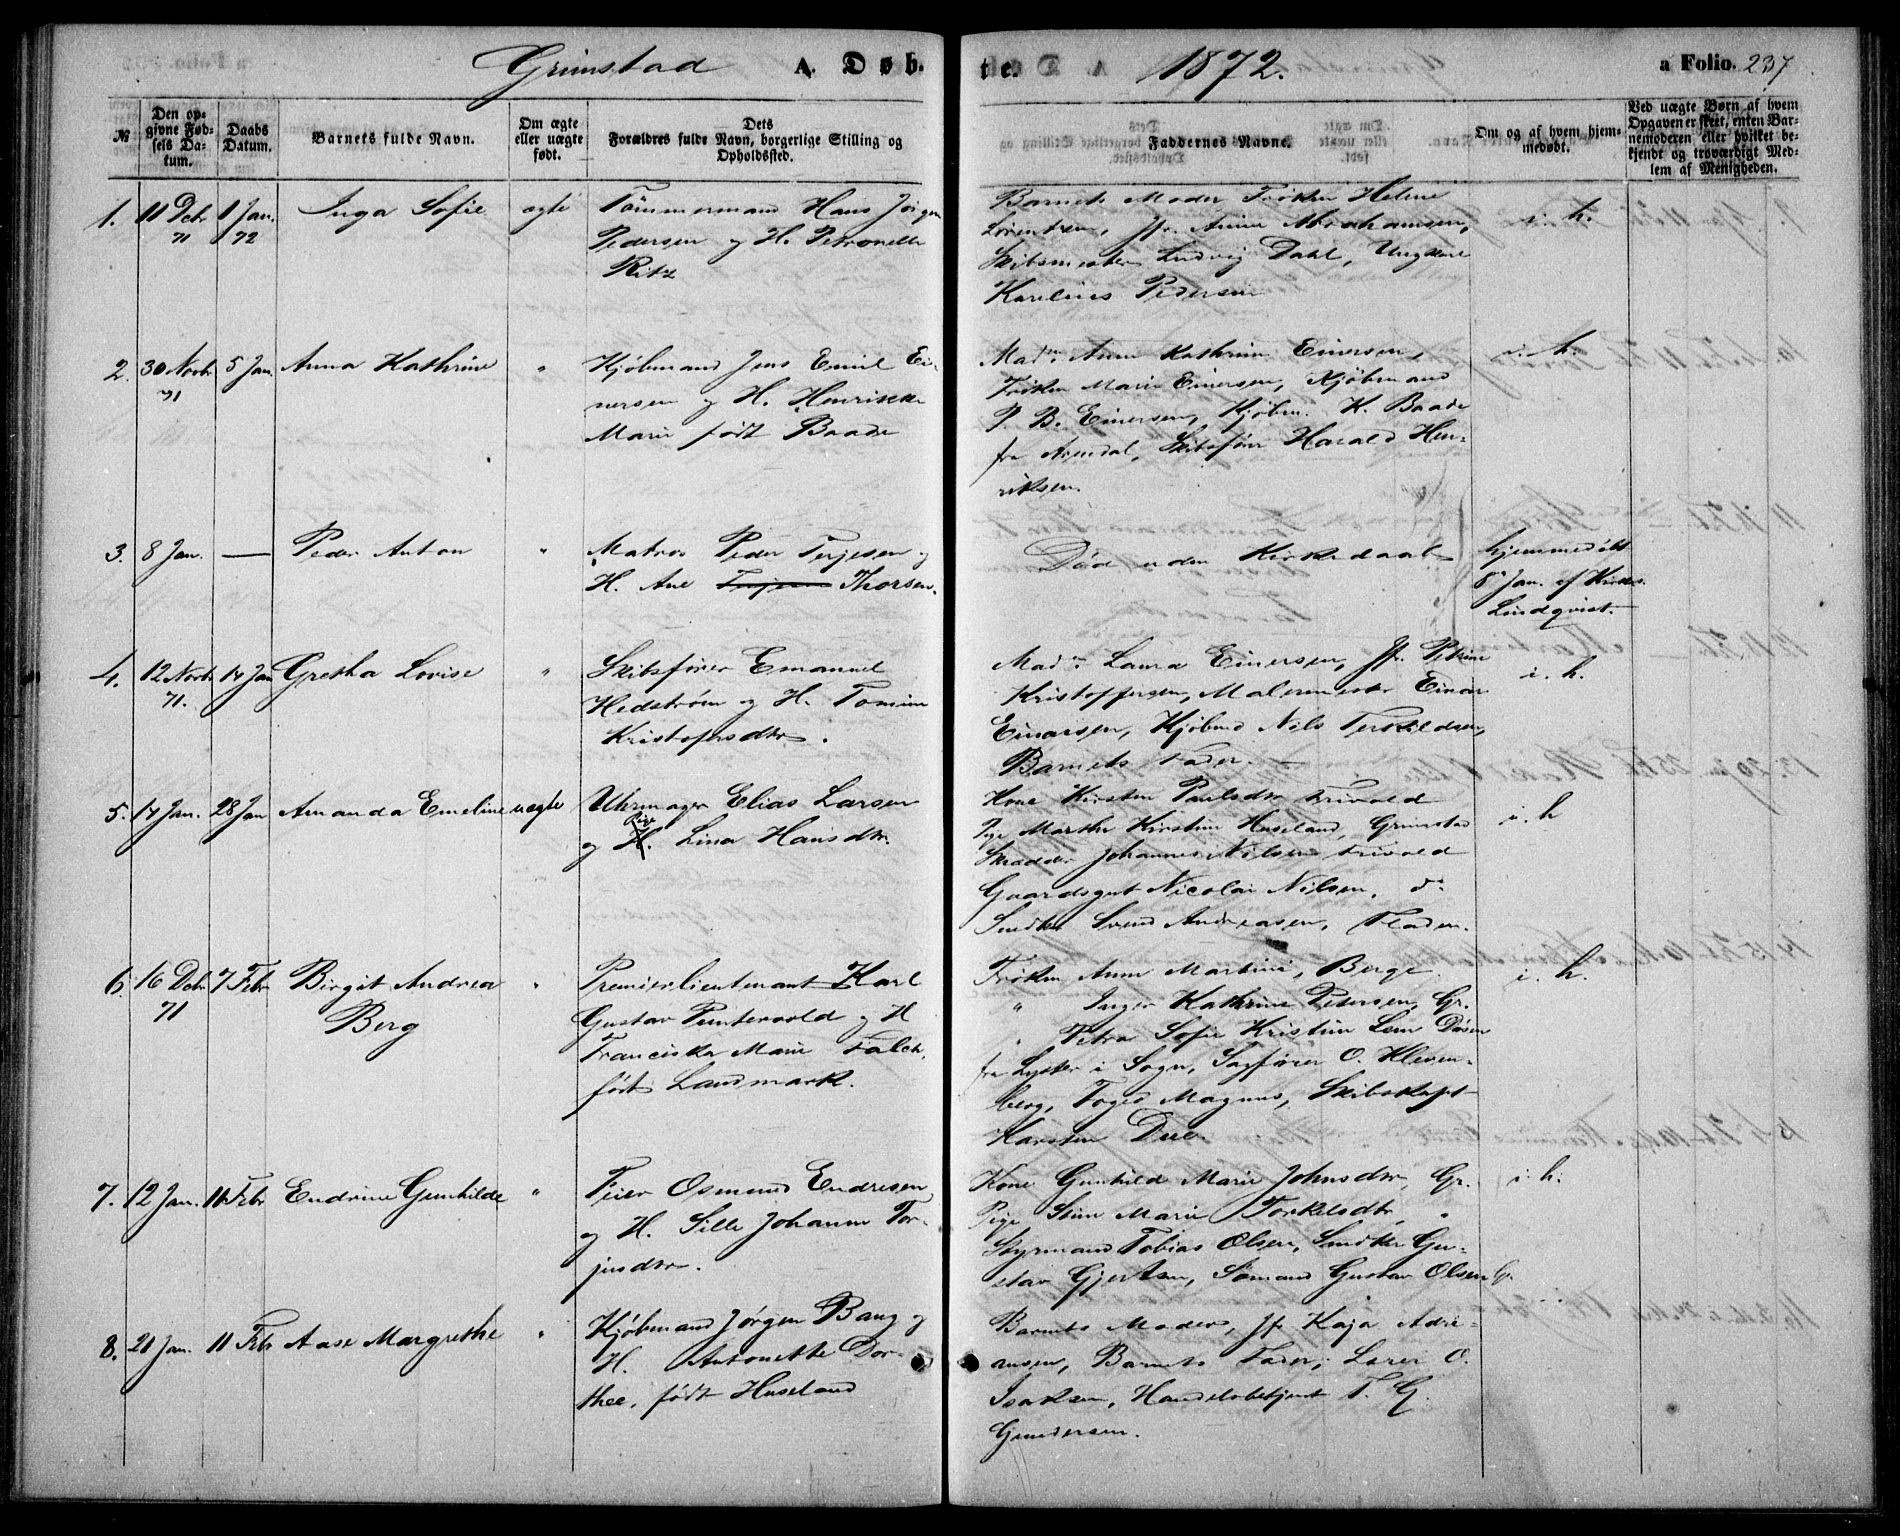 Grimstad A. Døbte. 1872. a Folio. 237
№ Den opgivne Fødsels Datum. Daabs Datum. Barnets fulde Navn. Om ægte eller uægte født. Dets Forældres fulde Navn, borgerlige Stilling og Opholdssted. Faddernes Navne. Om og af hvem hjemmedøbt. Ved uægte Børn af hvem Opgaven er skeet, enten Barnemoderen eller hvilket bekjendt og troværdigt Medlem af Menigheden.
1. 11 Debr 71 1 Jan. 72 Inga Sofie ægte
Tømmermand Hans Jørgen
Pedersen og H. Petronelle
Ritz
Barnets Moder Frøken Helene
Lorentzen, Jfr. Anne Abrahamsen,
Skibsmester Ludvig Dahl, Ungkarl
Karelius Pedersen
i. h.
2. 30 Novbr. 71 5 Jan. Anna Kathrine "
Kjøbmand Jens Emil Ei-
nersen og H. Henrikke
Marie født Baade
Madm. Anne Kathrine Einersen,
Frøken Marie Einersen, Kjøbmand
P. B. Einersen, Kjøbm. K. Baade
fra Arendal, Skibsfører Harald Hen-
riksen.
i. h.
3. 8 Jan. — Peder Anton "
Matros Peder Terjesen og
H. Ane Terjesen Thorsen.
Død uden Kirkedaab
hjemmedøbt
8 Jan. af Kirkes.
Lindqvist.
4. 12 Novbr. 71. 14 Jan Gretha Lovise "
Skibsfører Emanuel
Hedstrøm og H. Tomine
Kristofersdtr.
Madm. Laura Einersen, Jfr. Petrine
Kristoffersen, Malermester Einar
Einarsen, Kjøbmd Nils Terkildsen,
Barnets Fader. —
i. h.
5. 14 Jan. 28 Jan Amanda Emeline uægte
Uhrmager Elias Larsen
og H. Pige Lina Hansdtr.
Kone Kirsten Paulsdtr Frivold
Pige Marthe Kirstine Huseland, Grimstad
Skrædder Johannes Nilsen Frivold
Gaardsgut Nicolai Nilsen, do
Smdkr Svend Andreasen, Fladen.
i. h
6. 16 Debr 71 7 Febr Birgit Andrea
Berg "
Premierlieutenant Karl
Gustav Puntervold og H
Franciska Marie Falch,
født Landmark.
Frøken Anne Martine, Berge
" Inger Kathrine Petersen, Gr.
" Petra Sofie Kristine Lem Døsen
fra Lyster i Sogn, Sagfører O. Kleven-
berg, Foged Magnus, Skibskapt
Karsten Due
i. h.
7. 12 Jan. 11 Febr Endrine Gunhilde "
Feier Osmund Endresen
og H. Sille Johanne Tor-
jusdtr.
Kone Gunhild Marie Johnsdtr, Gr.
Pige Stine Marie Torkelsdtr, "
Styrmand Tobias Olsen, Smdkr Gu-
stav Gjertsen, Sømand Gustav Olsen Gr.
i. h.
8. 21 Jan. 11 Febr Aase Margrethe "
Kjøbmand Jørgen Bang og
H. Antonette Dor-
thee, født Huseland
Barnets Moder, Jfr. Kaja Adri-
ansen, Barnets Fader, Lærer O.
Isaksen, Handelsbetjent T. G.
Gundersen.